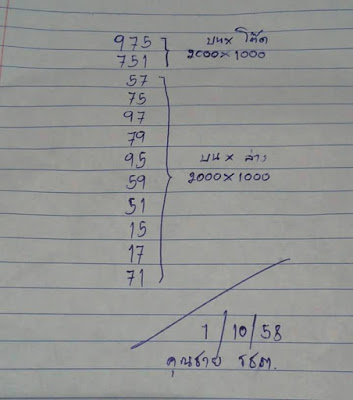 975 บน × โต๊ด
751 2000×1000
57
75
97
79
95 บน × ล่าง
59 2000×1000
51
15
17
71
1/10/58
คุณชาย รชต.